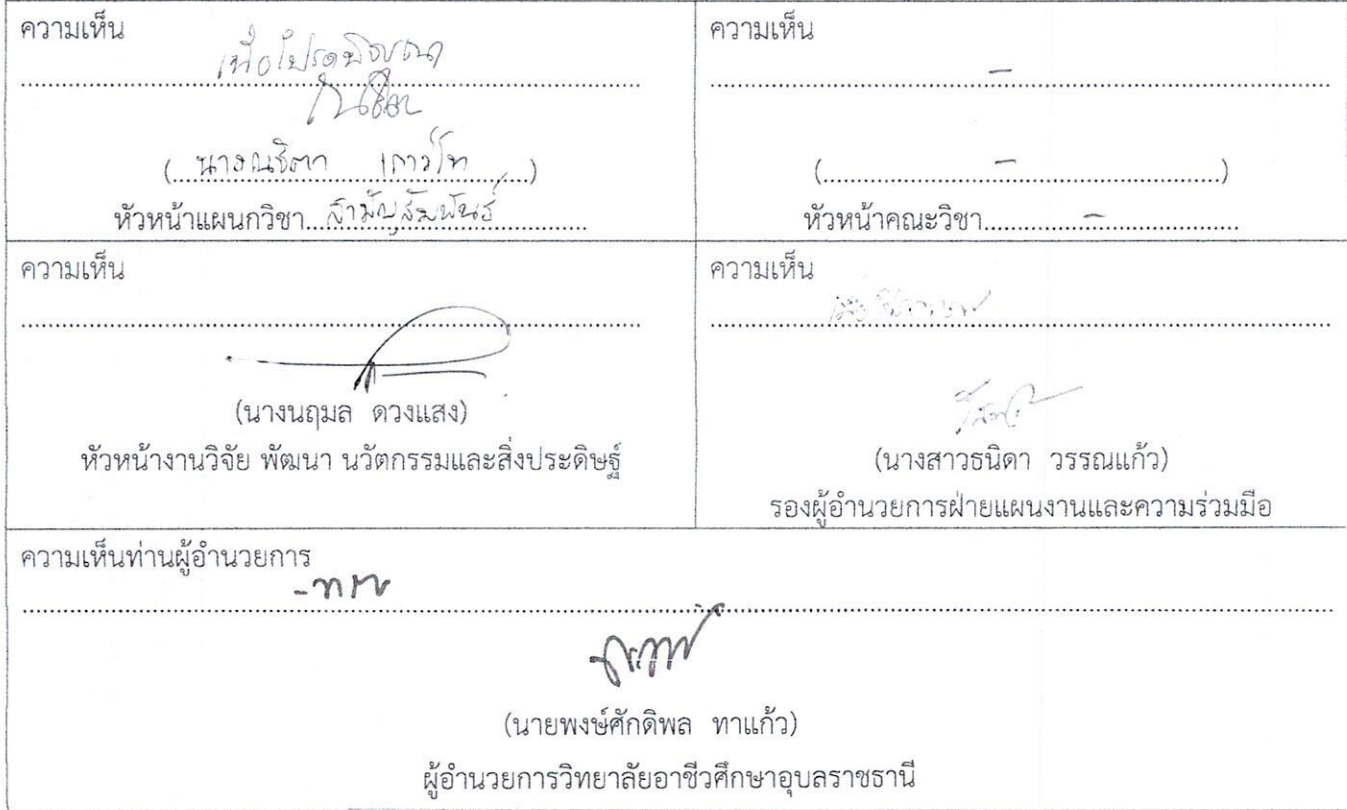 ความเห็น
เพื่อโปรดพิจารณา
(นางณธิตา เถาว์โท)
หัวหน้าแผนกวิชา สามัญสัมพันธ์
ความเห็น
-
(-)
หัวหน้าคณะวิชา -
ความเห็น
(นางนฤมล ดวงแสง)
หัวหน้างานวิจัย พัฒนา นวัตกรรมและสิ่งประดิษฐ์
ความเห็น
(นางสาวธนิดา วรรณแก้ว)
รองผู้อำนวยการฝ่ายแผนงานและความร่วมมือ
ความเห็นท่านผู้อำนวยการ
- ทราบ
(นายพงษ์ศักดิพล ทาแก้ว)
ผู้อำนวยการวิทยาลัยอาชีวศึกษาอุบลราชธานี